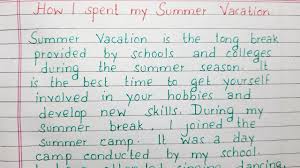 How I spent my Summer Vacation
Summer Vacation is the long break
provided by schools and colleges
during the summer season. It
is the best time to get yourself
involved in your hobbies and
develop new skills. During my
summer break, I joined the
summer camp. It was a day
camp conducted by my school.
dancing,